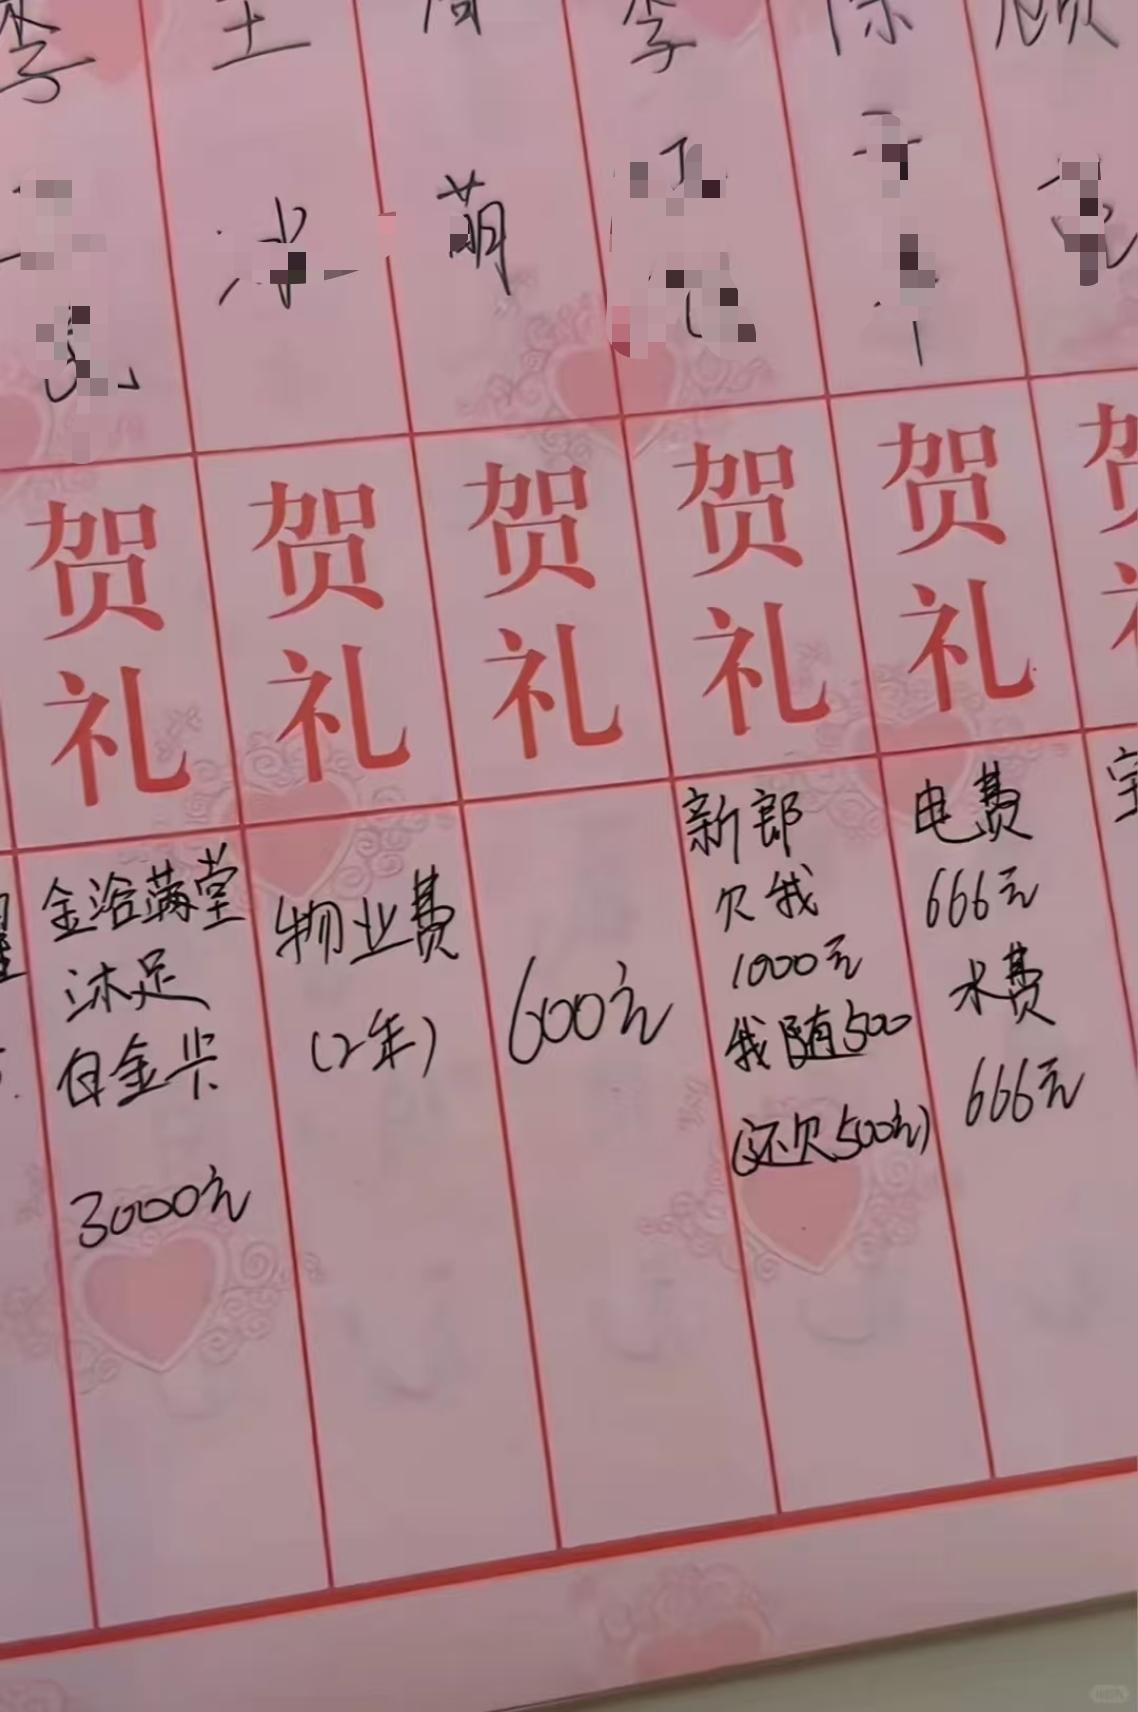 李
王
李
陈
顾
冰
萌
贺礼
贺礼
贺礼
贺礼
贺礼
金浴满堂
沐足
白金卡
3000元
物业费
(2年)
600元
新郎
欠我
1000元
我随500
(还欠500元)
电费
666元
水费
666元